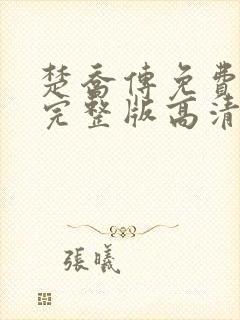 楚喬傳免費
完整版高清
張曦